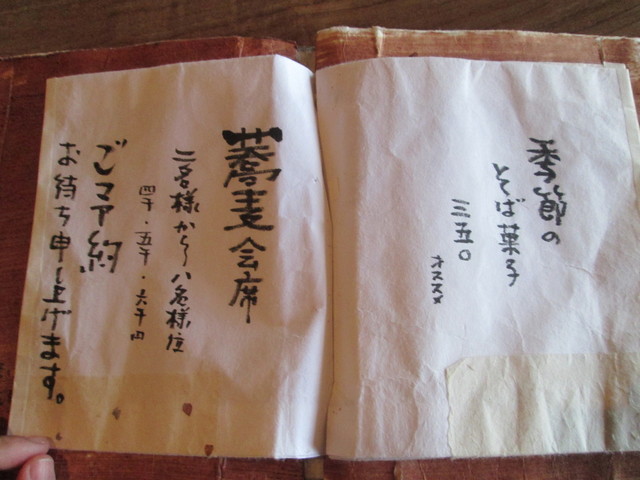 季節の
そば菓子
三五〇
オススメ
蕎麦会席
二名様から八名様位
四千・五千・六千円
ご予約
お待ち申し上げます。